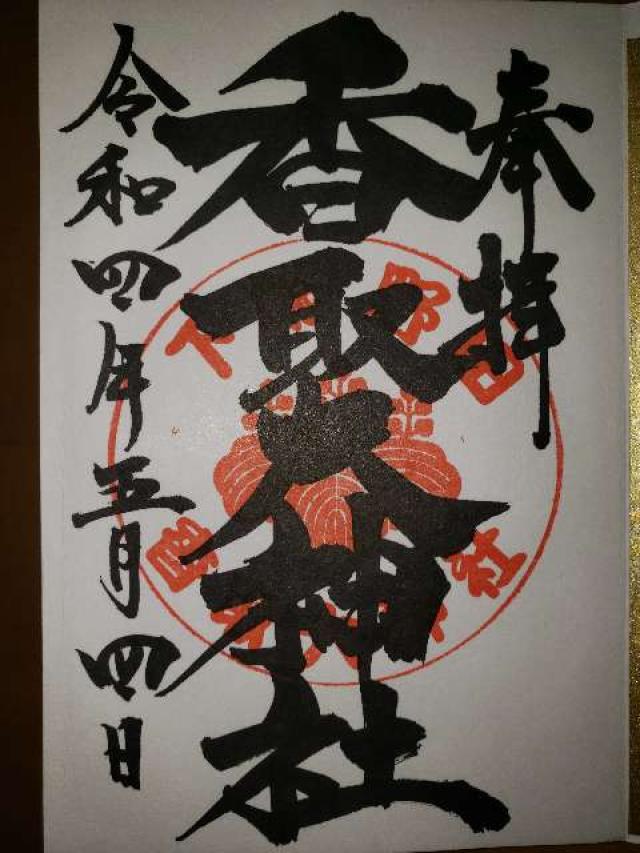 奉拝
香取大神社
令和四年五月四日